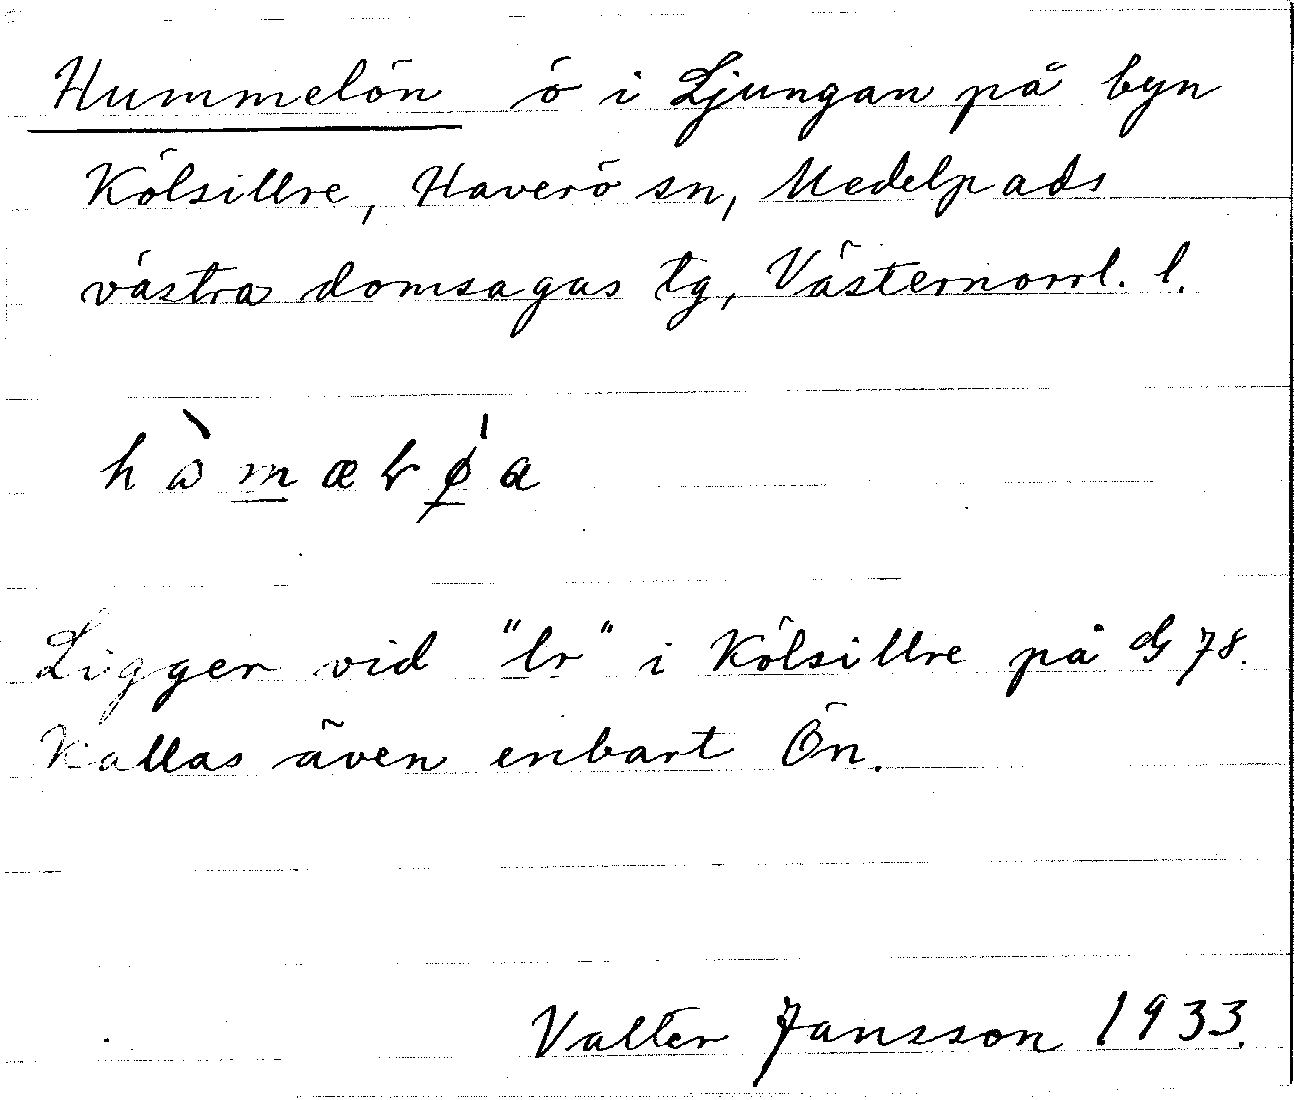 Hummelön ö i Ljungan på byn
Kölsillre, Haverö sn, Medelpads
västra domsagas tg, Västernorrl. l.
Ligger vid "lr" i Kölsillre på G 78.
Kallas även enbart Ön.
Valter Jansson 1933.